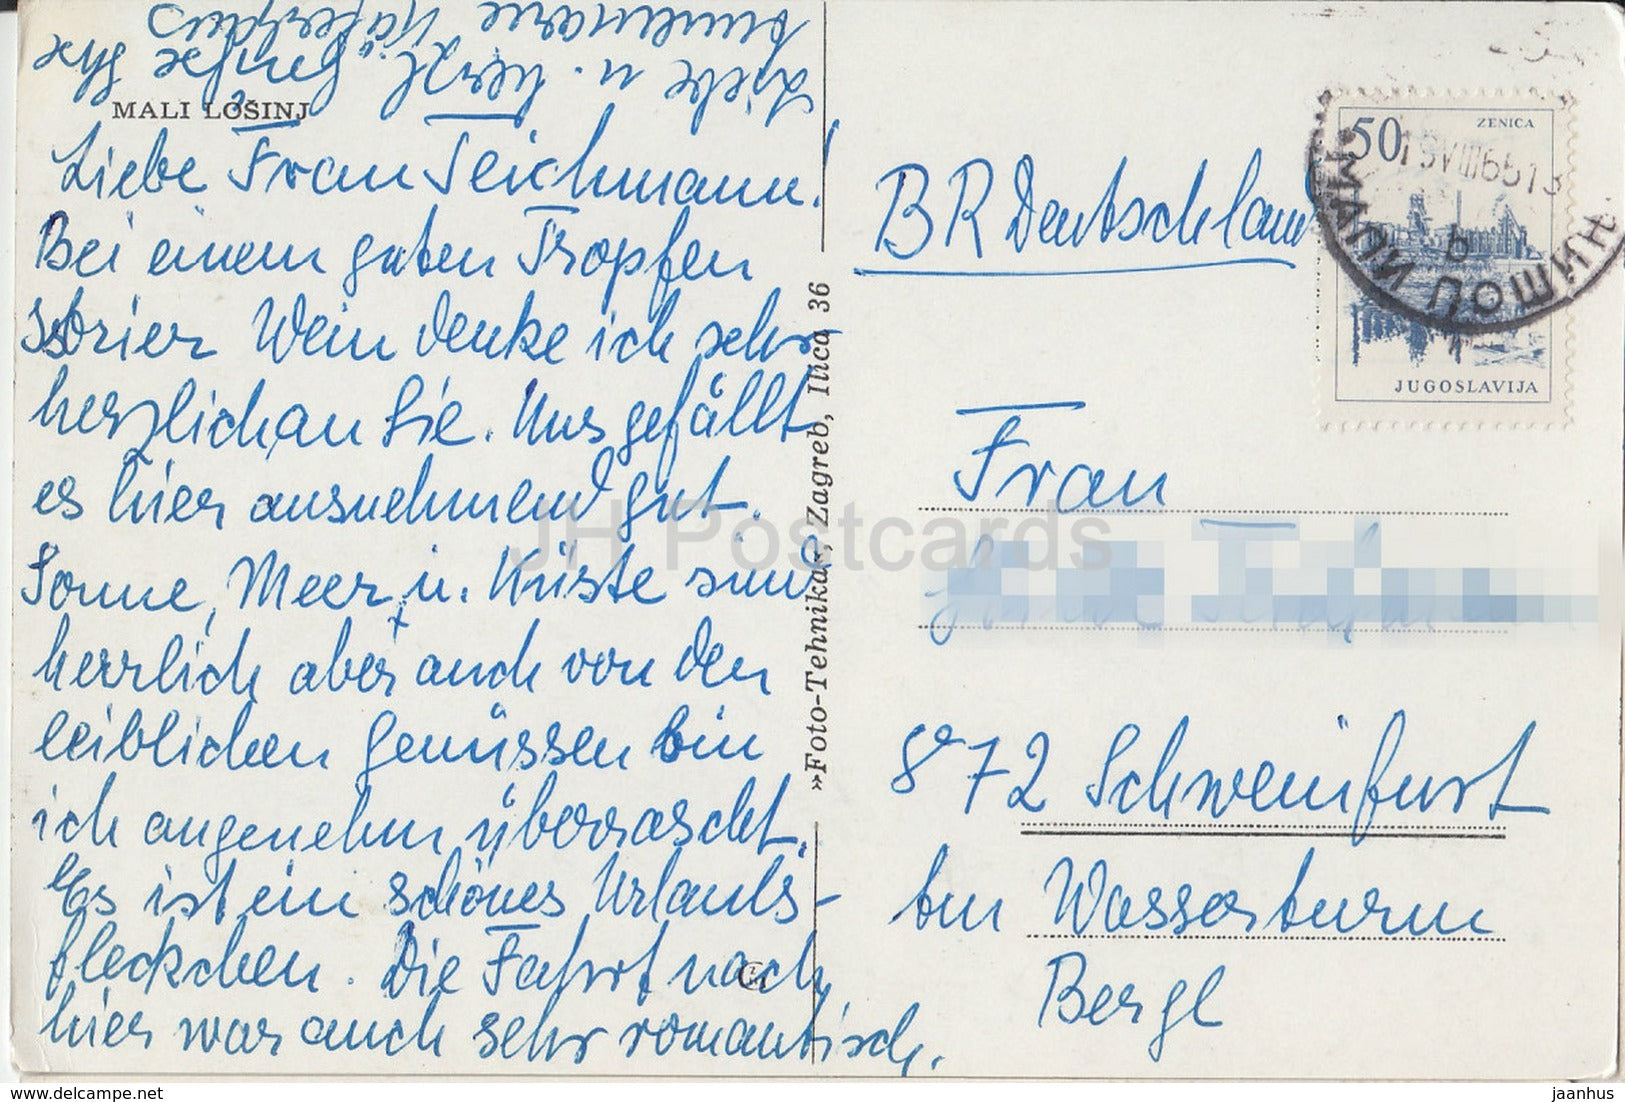 MALI LOŠINJ
Liebe Frau Teichmann!
Bei einem guten Tropfen
Istrier Wein denke ich sehr
herzlich an Sie. Uns gefällt
es hier ausnehmend gut.
Sonne, Meer u. Küste sind
herrlich aber auch von den
leiblichen Genüssen bin
ich angenehm überrascht.
Es ist ein schönes Urlaubs-
fleckchen. Die Fahrt nach
hier war auch sehr romantisch.
Liebe u. herzl. Grüße Ihre
»Foto-Tehnika«, Zagreb, Ilica 36
BR Deutschland
50 ZENICA
JUGOSLAVIJA
МАЛИ ЛОШИЊ
b
Frau
872 Schweinfurt
am Wasserturm
Bergl
JH Postcards
https://www.jaanhus.com
jaanhus